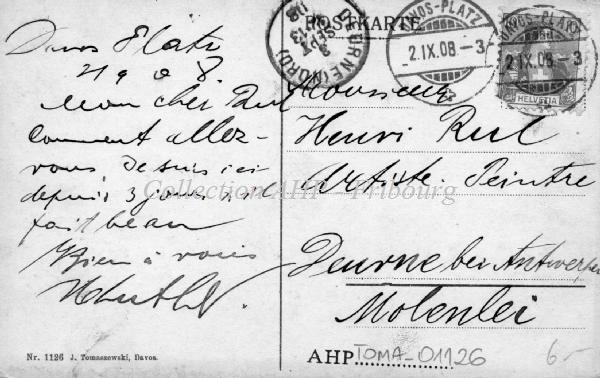 POSTKARTE
DAVOS-PLATZ
2.IX.08.-3
DAVOS-PLATZ
2.IX.08.-3
HELVETIA
DEURNE (NORD)
3
SEPT
13
08
Davos Platz
2 9 08.
Mon cher Rul
Comment allez-
vous Je suis ici
depuis 3 jours, il
fait beau
Bien à vous
Monsieur
Henri Rul
Artiste. Peintre
Deurne bei Antwerpen
Molenlei
Collection AHP - Fribourg
Nr. 1126 J. Tomaszewski, Davos.
AHP TOMA-01126
6.-